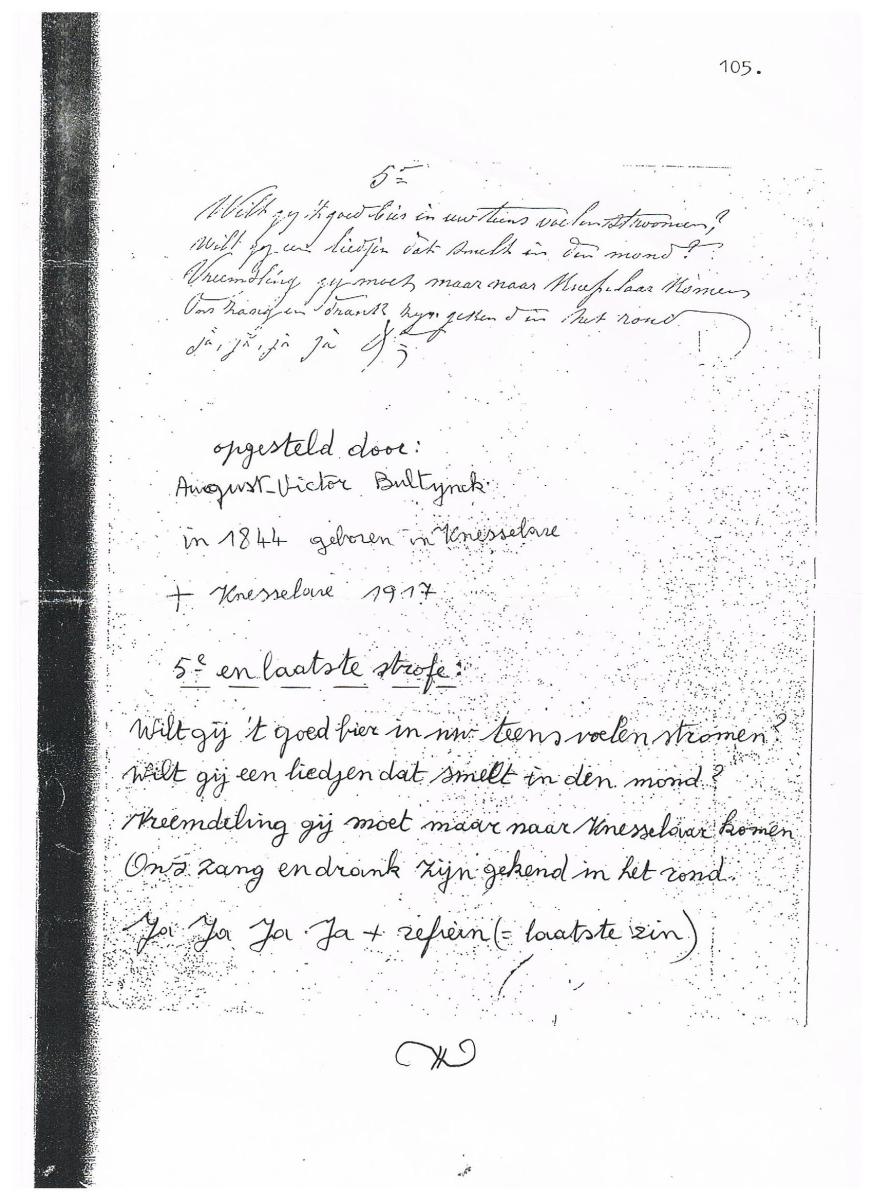 105.
5e
Wilt gij 't goed bier in uw teens voelen stroomen?
Wilt gij een liedjen dat smelt in den mond?
Vreemdling gij moet maar naar Knesselaar komen
Ons zang en drank zijn gekend in het rond
ja, ja, ja ja
opgesteld door:
August-Victor Bultynck
in 1844 geboren in Knesselare
+ Knesselare 1917
5e en laatste strofe:
Wilt gij 't goed bier in uw teens voelen stromen?
Wilt gij een liedjen dat smelt in den mond?
Vreemdeling gij moet maar naar Knesselaar komen
Ons zang en drank zijn gekend in het rond.
Ja Ja Ja Ja + refrein (= laatste zin)